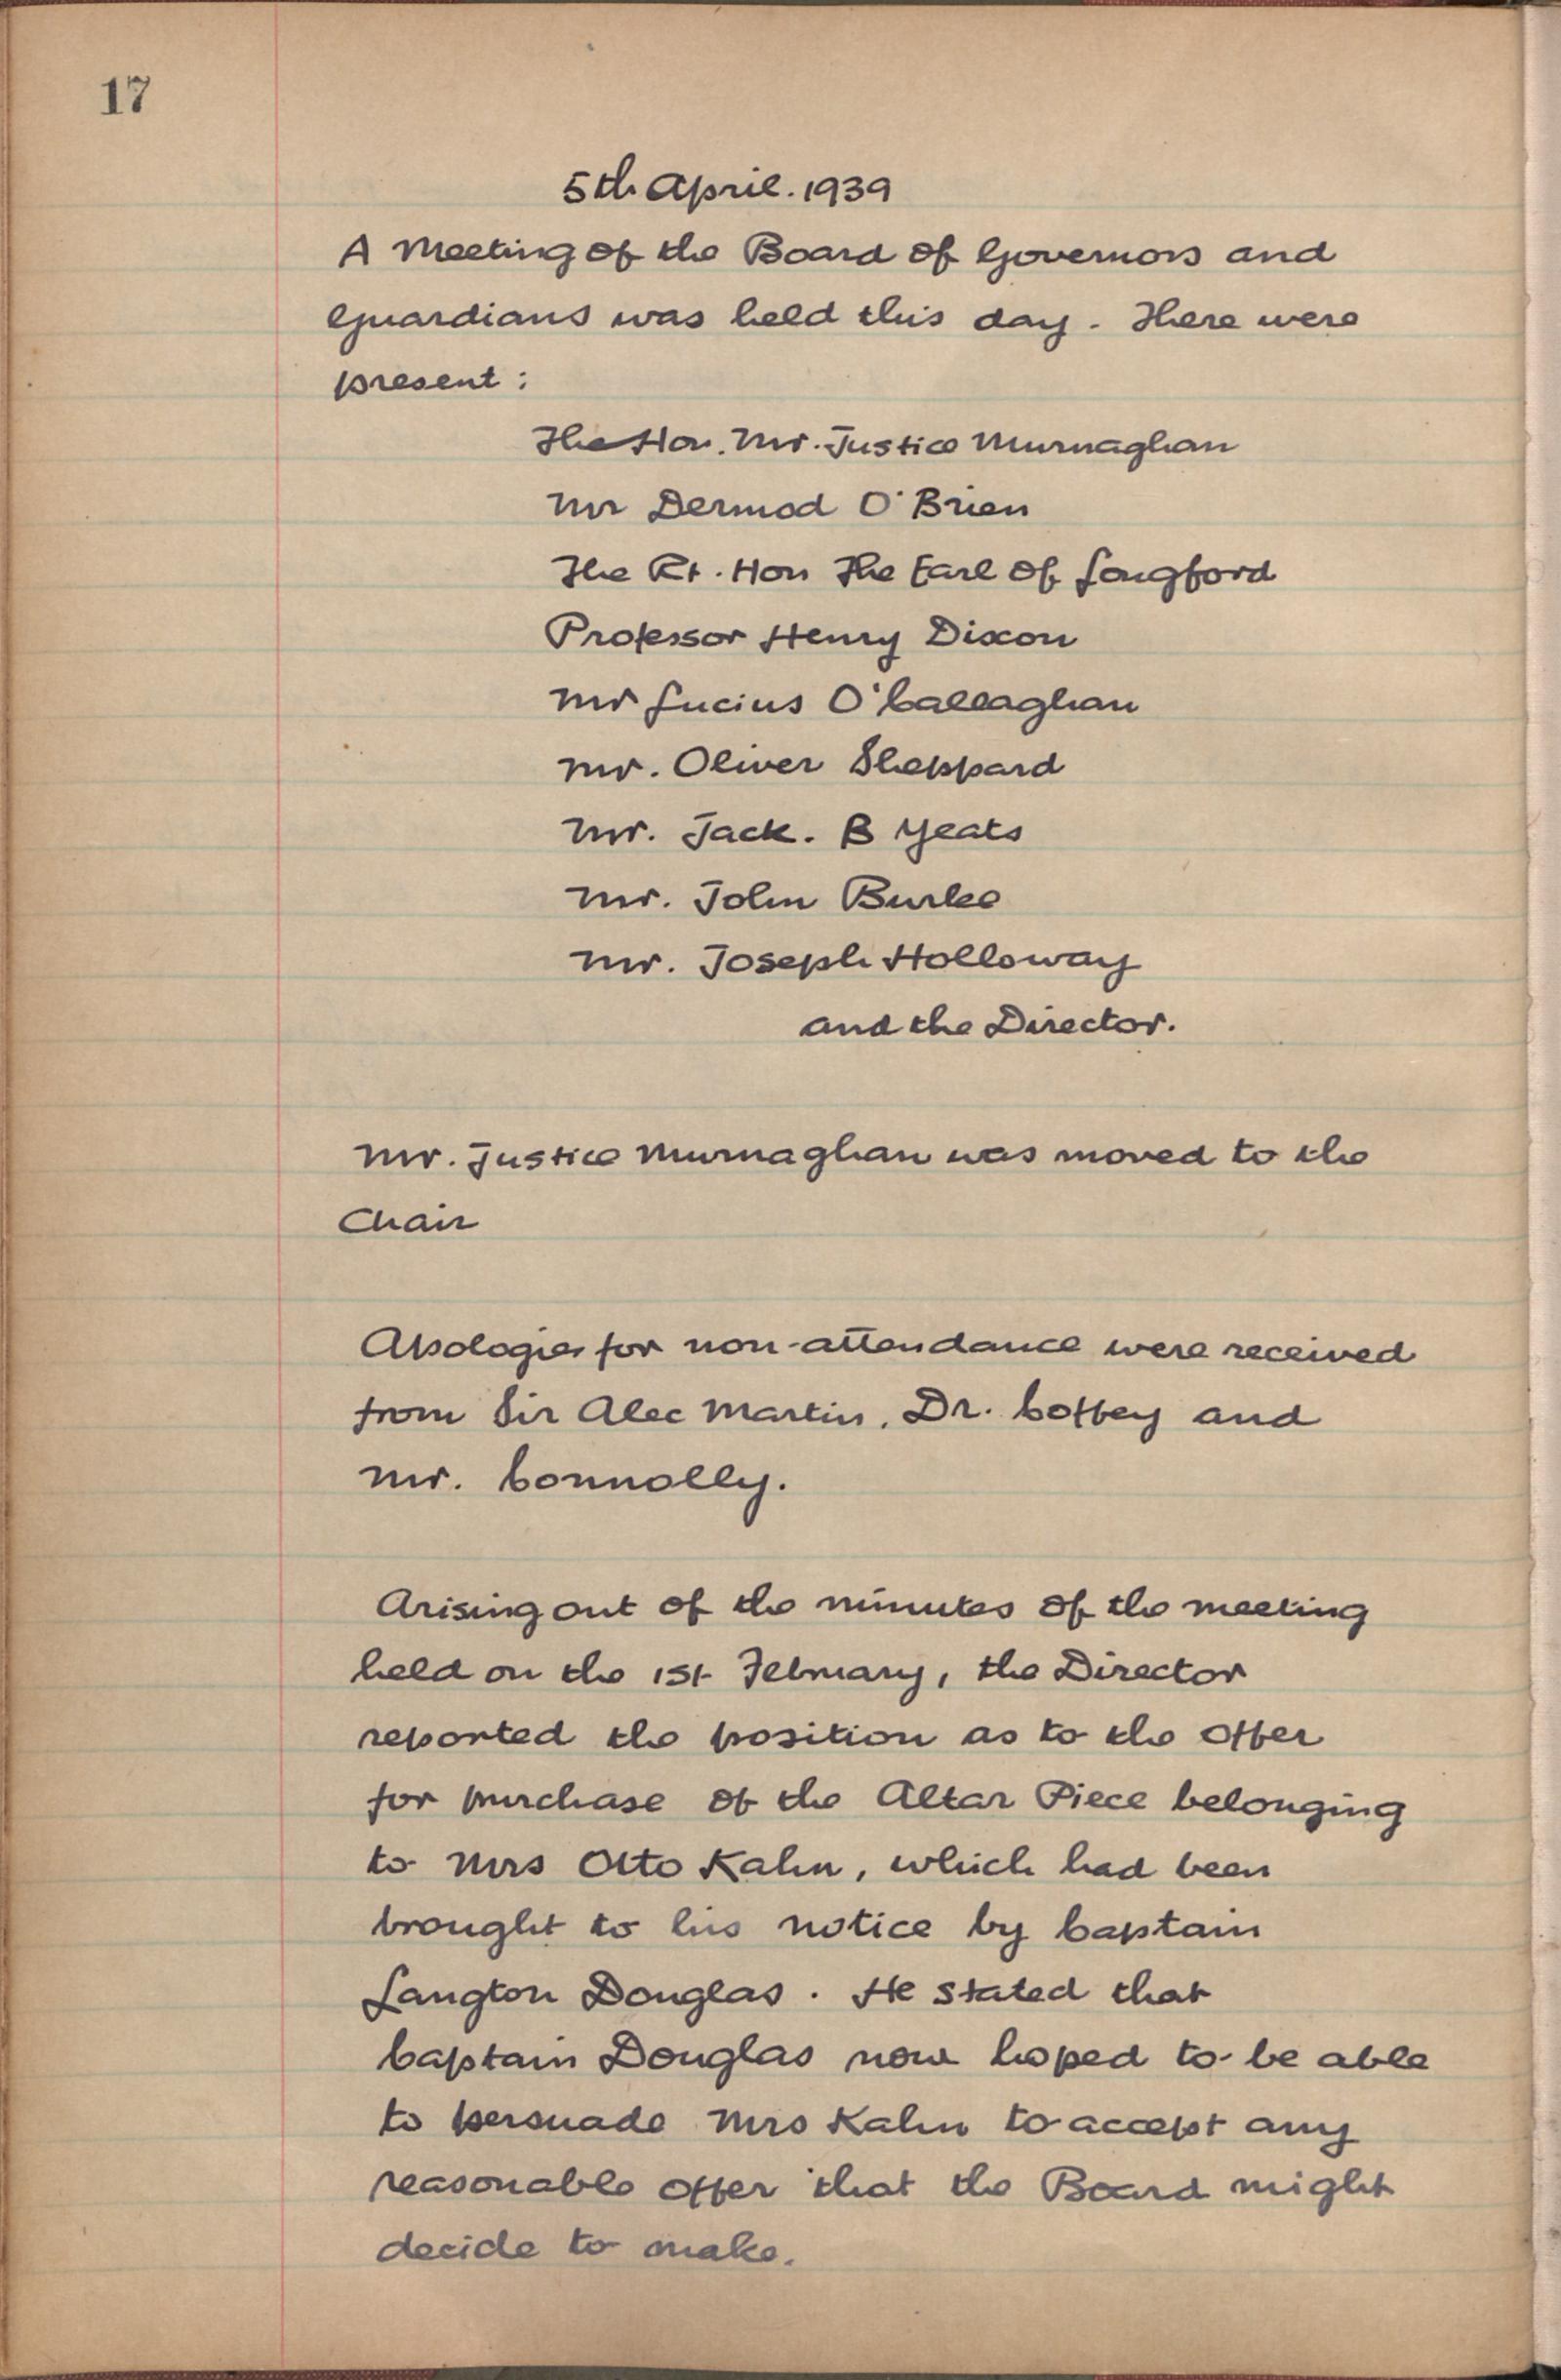 17
5th April. 1939
A Meeting of the Board of Governors and
Guardians was held this day. There were
present:
The Hon. Mr. Justice Murnaghan
Mr Dermod O'Brien
The Rt. Hon The Earl of Longford
Professor Henry Dixon
Mr Lucius O'Callaghan
Mr. Oliver Sheppard
Mr. Jack. B Yeats
Mr. John Burke
Mr. Joseph Holloway
and the Director.
Mr. Justice Murnaghan was moved to the
Chair
Apologies for non-attendance were received
from Sir Alec Martin, Dr. Coffey and
Mr. Connolly.
Arising out of the minutes of the meeting
held on the 1st February, the Director
reported the position as to the offer
for purchase of the Altar Piece belonging
to Mrs Otto Kahn, which had been
brought to his notice by Captain
Langton Douglas. He stated that
Captain Douglas now hoped to be able
to persuade Mrs Kahn to accept any
reasonable offer that the Board might
decide to make.